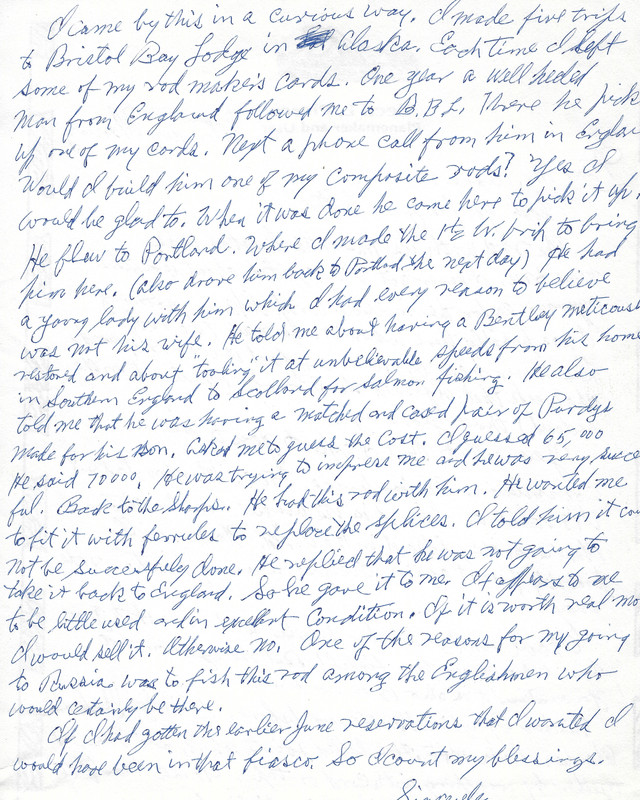 I came by this in a curious way. I made five trips
to Bristol Bay Lodge in Alaska. Each time I left
some of my rod makers cards. One year a well heeled
man from England followed me to B.B.L. There he pick
up one of my cards. Next a phone call from him in Englan
Would I build him one of my composite rods? Yes I
would be glad to. When it was done he came here to pick it up.
He flew to Portland. Where I made the trip to bring
him here. (also drove him back to Portland the next day) He had
a young lady with him which I had every reason to believe
was not his wife. He told me about having a Bentley meticous
restored and about "tooling" it at unbelievable speeds from his home
in Southern England to Scotland for salmon fishing. He also
told me that he was having a matched and cased pair of Purdys
made for his son. Asked me to guess the cost. I guessed 65,000
He said 70000. He was trying to impress me and he was very succe
ful. Back to the Sharps. He had this rod with him. He wanted me
to fit it with ferrules to replace the splices. I told him it cou
not be successfuly done. He replied that he was not going to
take it back to England. So he gave it to me. It appears to me
to be little used and in excellent condition. If it is worth real mo
I would sell it. Otherwise no. One of the reasons for my going
to Russia was to fish this rod among the Englishmen who
would certainly be there.
If I had gotten the earlier June reservations that I wanted I
would have been in that fiasco. So I count my blessings.